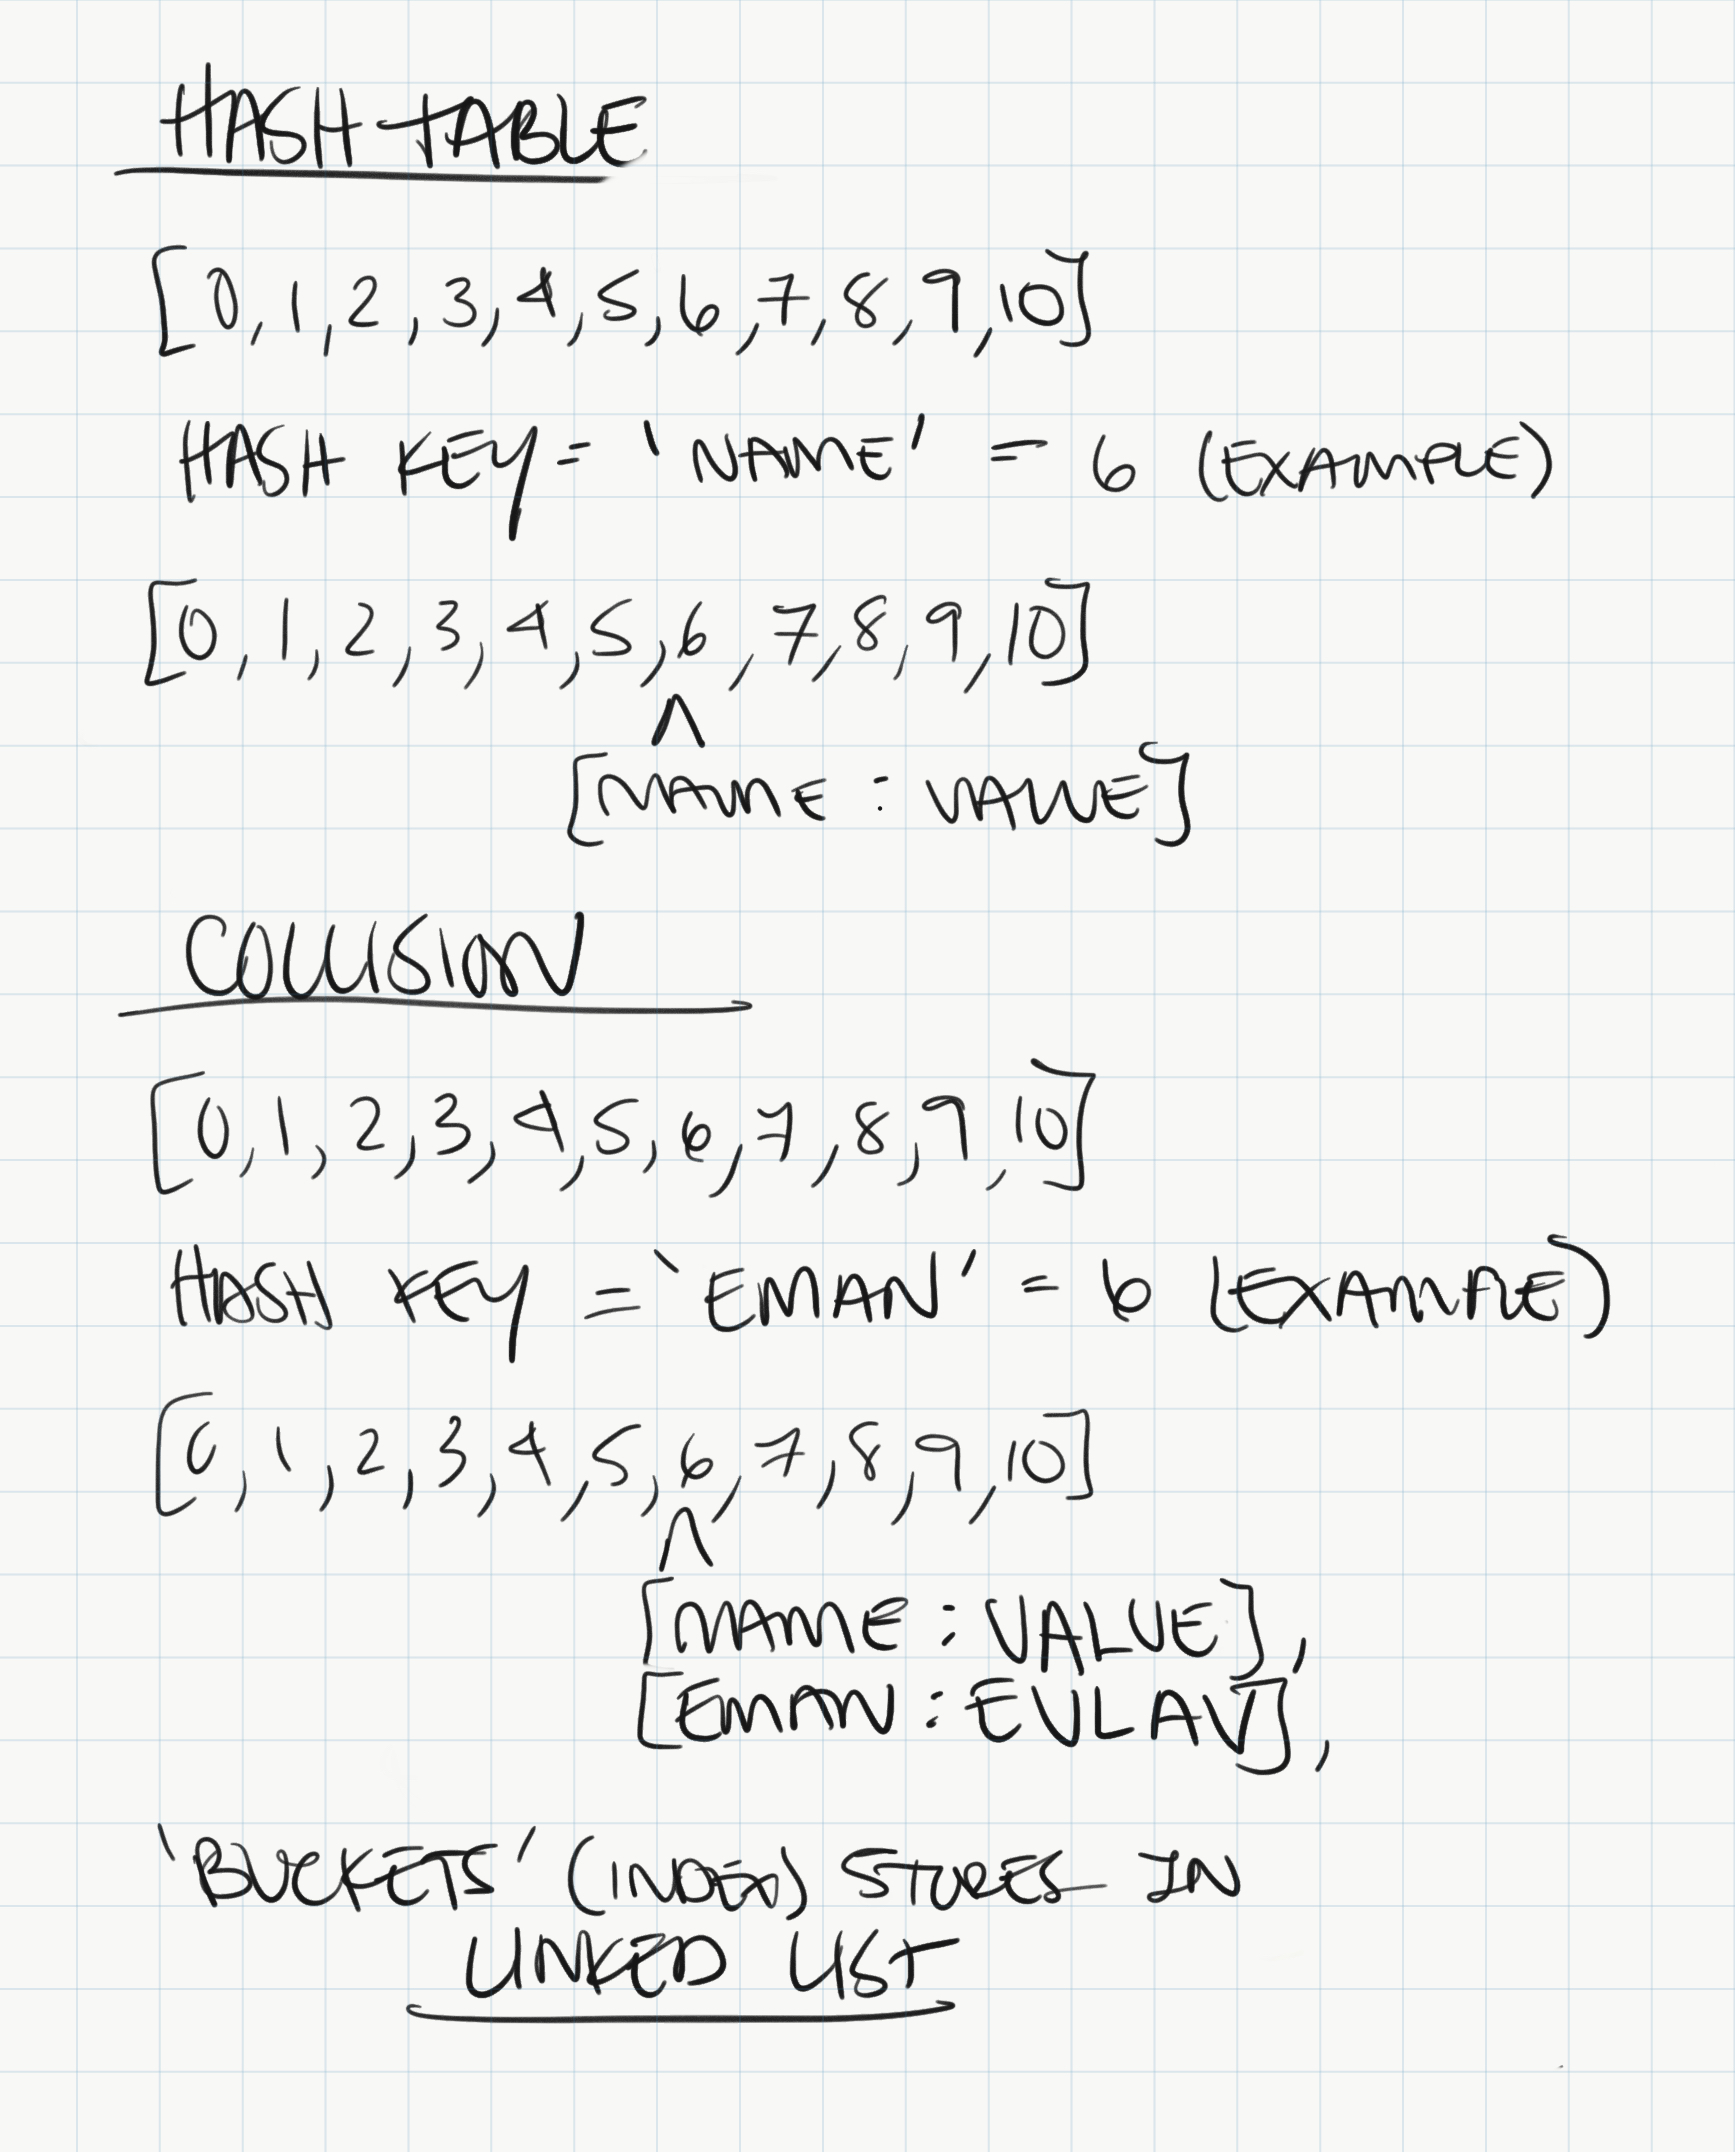 HASH TABLE
[0, 1, 2, 3, 4, 5, 6, 7, 8, 9, 10]
HASH KEY = 'NAME' = 6 (EXAMPLE)
[0, 1, 2, 3, 4, 5, 6, 7, 8, 9, 10]
^
[NAME : VALUE]
COLLISION
[0, 1, 2, 3, 4, 5, 6, 7, 8, 9, 10]
HASH KEY = 'EMAN' = 6 (EXAMPLE)
[0, 1, 2, 3, 4, 5, 6, 7, 8, 9, 10]
^
[NAME : VALUE],
[EMAN : EULAV],
'BUCKETS' (INDEX) STORES IN
LINKED LIST